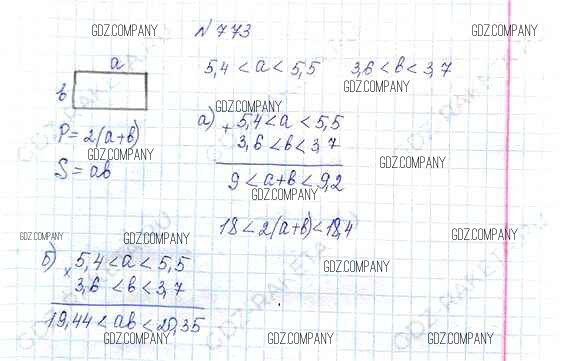 №773
a
b
5,4 < a < 5,5 3,6 < b < 3,7
P = 2(a+b)
S = ab
а) + 5,4 < a < 5,5
3,6 < b < 3,7
9 < a+b < 9,2
18 < 2(a+b) < 18,4
б) × 5,4 < a < 5,5
3,6 < b < 3,7
19,44 < ab < 20,35
GDZ.COMPANY
GDZ.COMPANY
GDZ.COMPANY
GDZ.COMPANY
GDZ.COMPANY
GDZ.COMPANY
GDZ.COMPANY
GDZ.COMPANY
GDZ.COMPANY
GDZ.COMPANY
GDZ.COMPANY
GDZ.COMPANY
GDZ.COMPANY
GDZ.COMPANY